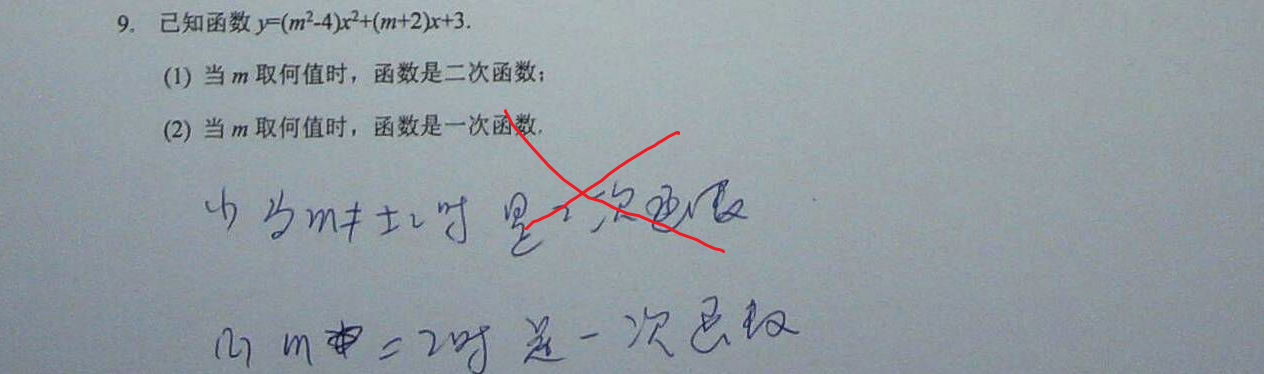 9. 已知函数 y=(m²-4)x²+(m+2)x+3.
(1) 当 m 取何值时，函数是二次函数；
(2) 当 m 取何值时，函数是一次函数.
(1) 当 m≠±2时 是二次函数
(2) m=2时 是一次函数